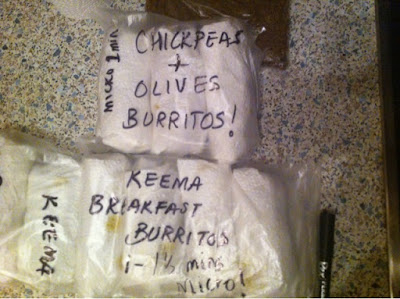 MICRO 1 MIN
CHICKPEAS
+
OLIVES
BURRITOS!
KEEMA
KEEMA
BREAKFAST
BURRITOS
1-1½ mins
MICRO!